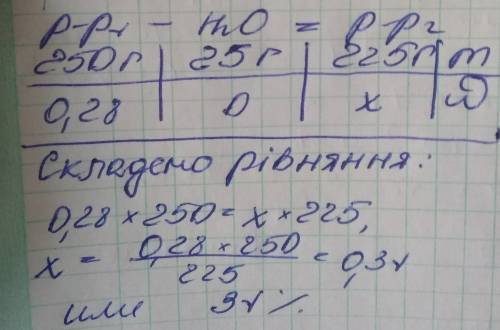 р-р₁ - H₂O = р-р₂
250г | 25г | 225г | m
0,28 | 0 | x | ω
Складемо рівняння:
0,28 × 250 = x × 225,
x = 0,28 × 250 / 225 = 0,31
или 31%.